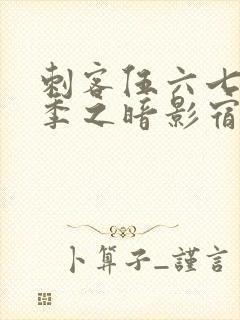 刺客伍六七
季之暗影宿
卜算子_謹言